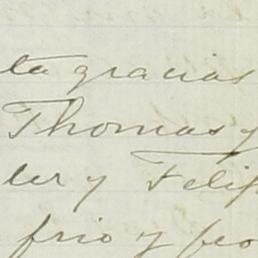 ta gracias
Thomas y
ler y Felip
frio y feo